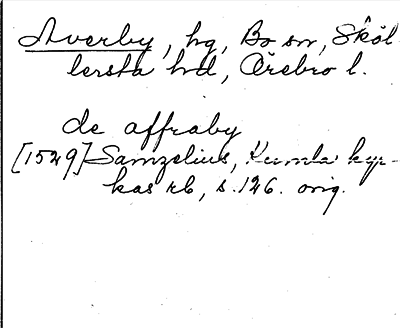 Averby, hg, Bo sn, Sköl-
lersta hd, Örebro l.
de affraby
[1529] Samzelius, Kumla kyr-
kas rb, s. 126. orig.